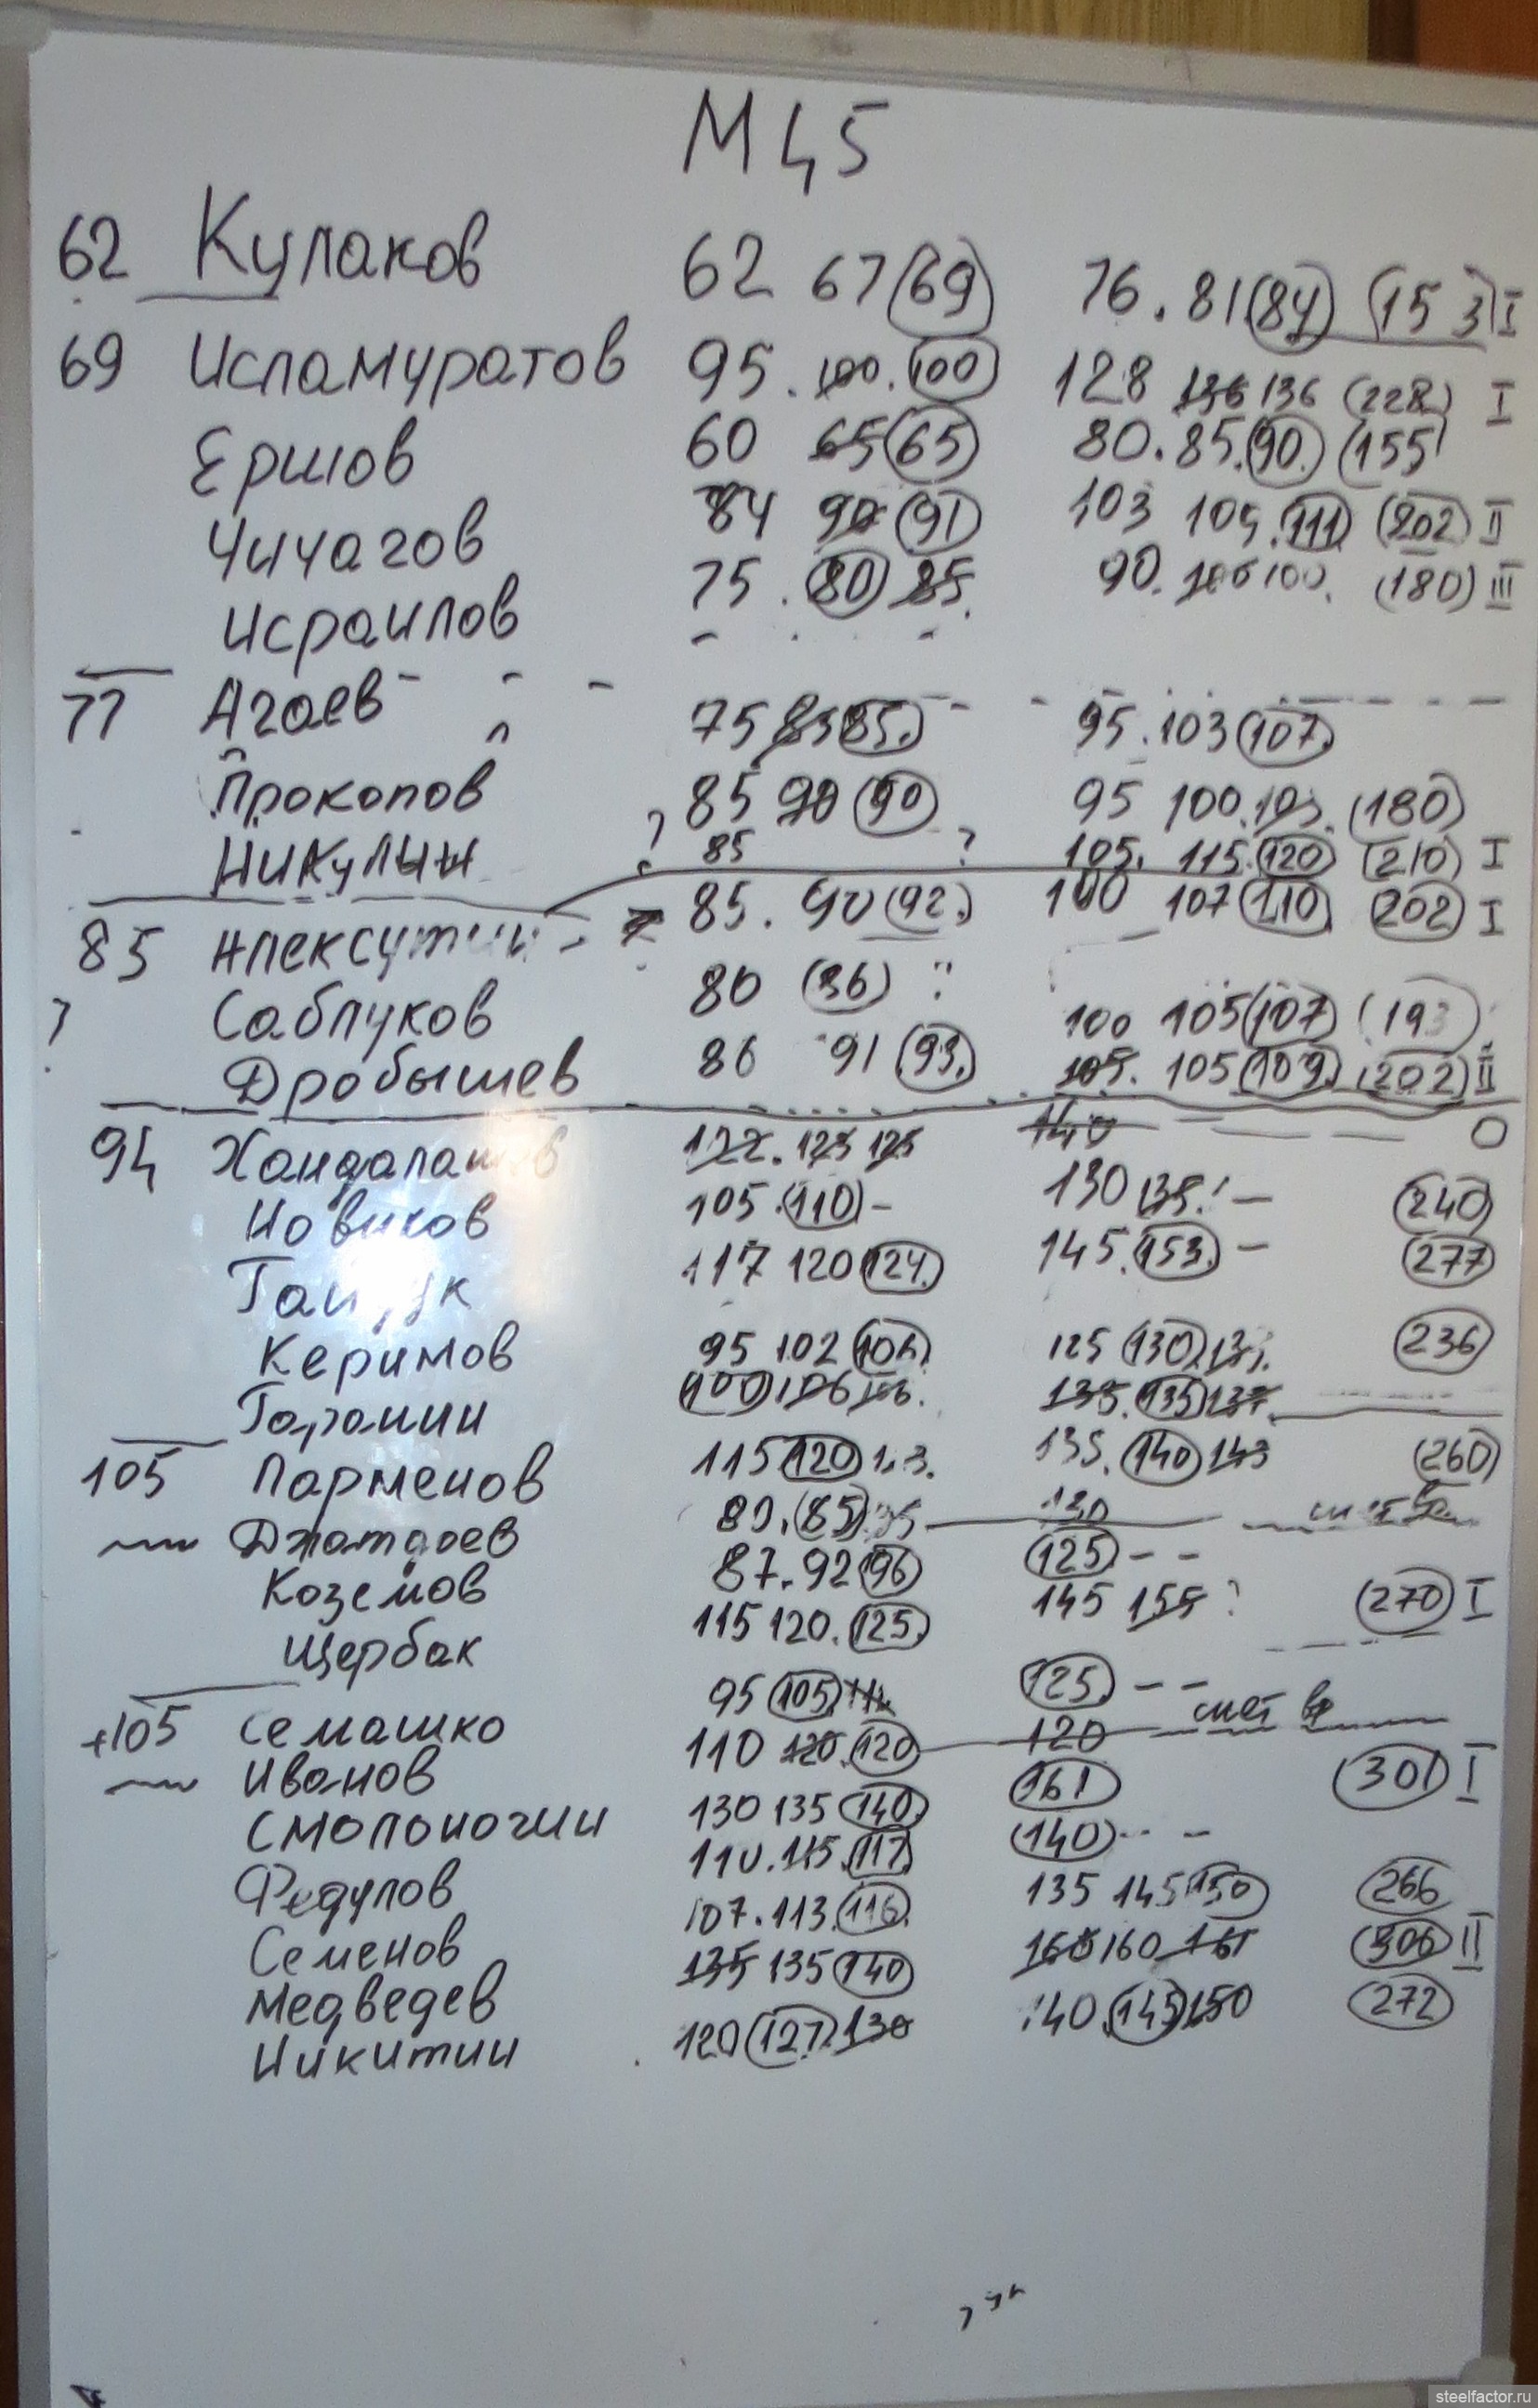 М45
62 Кулаков 62 67 69 76. 81 84 153 I
69 Исламуратов 95. 100. 100 128 136 136 (228) I
Ершов 60 65 65 80. 85. 90. (155)
Чичагов 84 90 91 103 109. 111 (202) II
Исраилов 75. 80 85. 90. 100 100. (180) III
77 Агаев 75 85 85. 95. 103 107.
Прокопов 85 90 90 95 100. 103. (180)
Никулын ? 85 ? 105. 115. 120 (210) I
85 Алексутин 85. 90 92. 100 107 110 202 I
? Саблуков 80 (86) ? 100 105 107 (193)
Дробышев 86 91 93. 105. 105 109. (202) II
94 122. 123 125 140 0
Новиков 105. (110) – 130 135. – 240
117 120 124. 145. 153. – 277
Керимов 95 102 106. 125 130. 236
100 106 106. 135. 135 137.
105 Парменов 115 120 135. 140 143 (260)
80. (85) 130
87. 92 96 125 – –
Щербак 115 120. 125. 145 155 ? 270 I
+105 Семашко 95 105. 125. – –
Иванов 110 120. 120 120
Смолоногин 130 135 140. 161 301 I
Федулов 110. 115. 117. (140) – –
Семенов 107. 113. 116. 135 145 150 266
Медведев 135 135 140 160 160 161 306 II
Никитин 120 127. 130 140. 145 150 272
steelfactor.ru